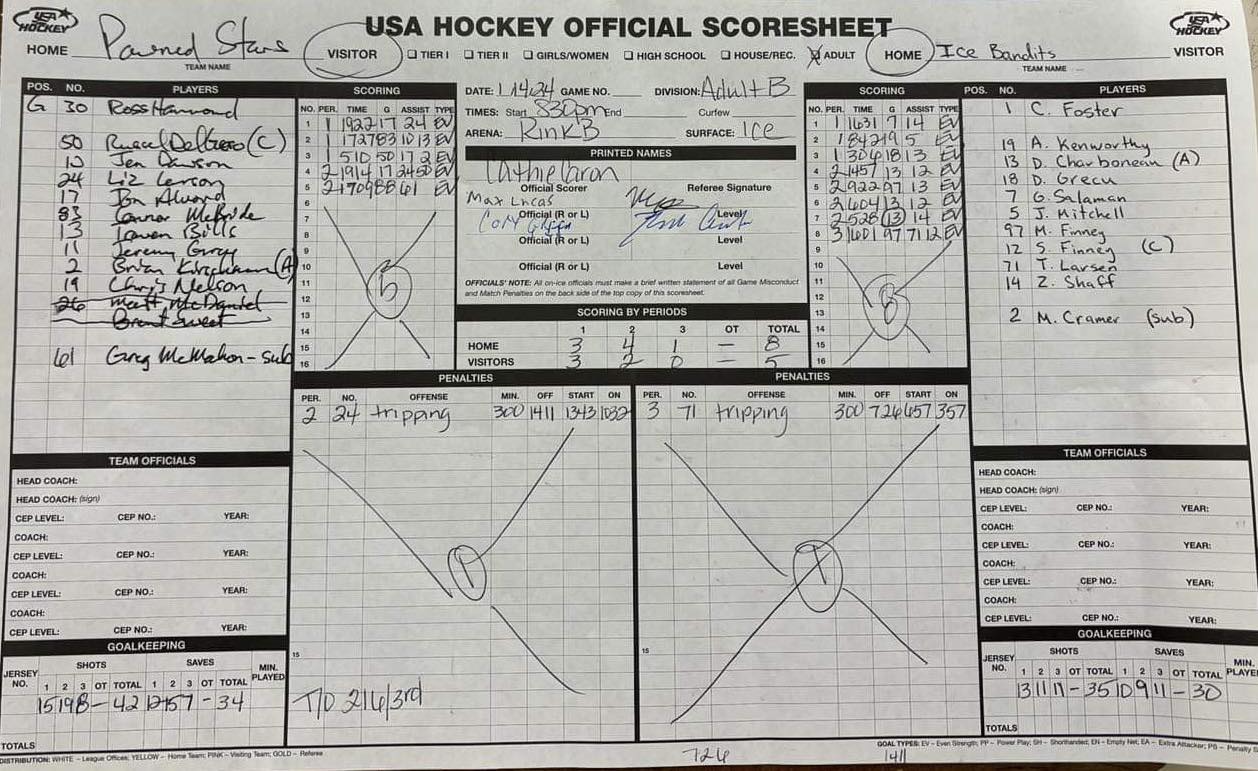 USA HOCKEY
USA HOCKEY OFFICIAL SCORESHEET
USA HOCKEY
HOME Pawned Stars VISITOR ☐ TIER I ☐ TIER II ☐ GIRLS/WOMEN ☐ HIGH SCHOOL ☐ HOUSE/REC. ☒ ADULT HOME Ice Bandits VISITOR
TEAM NAME
TEAM NAME
POS. NO. PLAYERS
G 30 Ross Hammond
50 (C)
10 Jen Dawson
24 Liz
17 Jon Alvord
83 Connor McBride
13 Bills
11 Jeremy
2 Brian (A)
19 Chris Nelson
26 Matt McDaniel
Brent Sweet
61 Greg McMahon - sub
SCORING
NO. PER. TIME G ASSIST TYPE
1 1 1922 17 24 EV
2 1 1727 83 10 13 EV
3 1 510 50 17 2 EV
4 2 1914 17 24 50 EV
5 2 1709 88 61 EV
6
7
8
9
10
11
12
13
14
15
16
5
DATE: 1.14.24 GAME NO. DIVISION: Adult B
TIMES: Start 830pm End Curfew
ARENA: Rink B SURFACE: Ice
PRINTED NAMES
Cathie Caron
Official Scorer Referee Signature
Max Lucas
Official (R or L) Level
Cory
Official (R or L) Level
Official (R or L) Level
OFFICIALS' NOTE: All on-ice officials must make a brief written statement of all Game Misconduct
and Match Penalties on the back side of the top copy of this scoresheet.
SCORING BY PERIODS
1 2 3 OT TOTAL
HOME 3 4 1 - 8
VISITORS 3 2 0 - 5
SCORING
NO. PER. TIME G ASSIST TYPE
1 1 1631 7 14 EV
2 1 842 19 5 EV
3 1 304 18 13 EV
4 2 1457 13 12 EV
5 2 922 97 13 EV
6 2 604 13 12 EV
7 2 528 13 14 EV
8 3 1601 97 71 12 EV
9
10
11
12
13
14
15
16
8
POS. NO. PLAYERS
1 C. Foster
19 A. Kenworthy
13 D. Charbonean (A)
18 D. Grecu
7 G. Salaman
5 J. Mitchell
97 M. Finney
12 S. Finney (C)
71 T. Larsen
14 Z. Shaff
2 M. Cramer (sub)
PENALTIES
PER. NO. OFFENSE MIN. OFF START ON
2 24 tripping 300 1411 1343 1032
1
15
T/O 216/3rd
PENALTIES
PER. NO. OFFENSE MIN. OFF START ON
3 71 tripping 300 726 657 357
1
15
TEAM OFFICIALS
HEAD COACH:
HEAD COACH: (sign)
CEP LEVEL: CEP NO.: YEAR:
COACH:
CEP LEVEL: CEP NO.: YEAR:
COACH:
CEP LEVEL: CEP NO.: YEAR:
COACH:
CEP LEVEL: CEP NO.: YEAR:
GOALKEEPING
JERSEY NO. SHOTS SAVES MIN. PLAYED
1 2 3 OT TOTAL 1 2 3 OT TOTAL
15 19 8 - 42 12 15 7 - 34
TOTALS
TEAM OFFICIALS
HEAD COACH:
HEAD COACH: (sign)
CEP LEVEL: CEP NO.: YEAR:
COACH:
CEP LEVEL: CEP NO.: YEAR:
COACH:
CEP LEVEL: CEP NO.: YEAR:
COACH:
CEP LEVEL: CEP NO.: YEAR:
GOALKEEPING
JERSEY NO. SHOTS SAVES MIN. PLAYE
1 2 3 OT TOTAL 1 2 3 OT TOTAL
13 11 11 - 35 10 9 11 - 30
TOTALS
DISTRIBUTION: WHITE – League Offices; YELLOW – Home Team; PINK – Visiting Team; GOLD – Referee
726
GOAL TYPES: EV – Even Strength; PP – Power Play; SH – Shorthanded; EN – Empty Net; EA – Extra Attacker; PS – Penalty S
1411